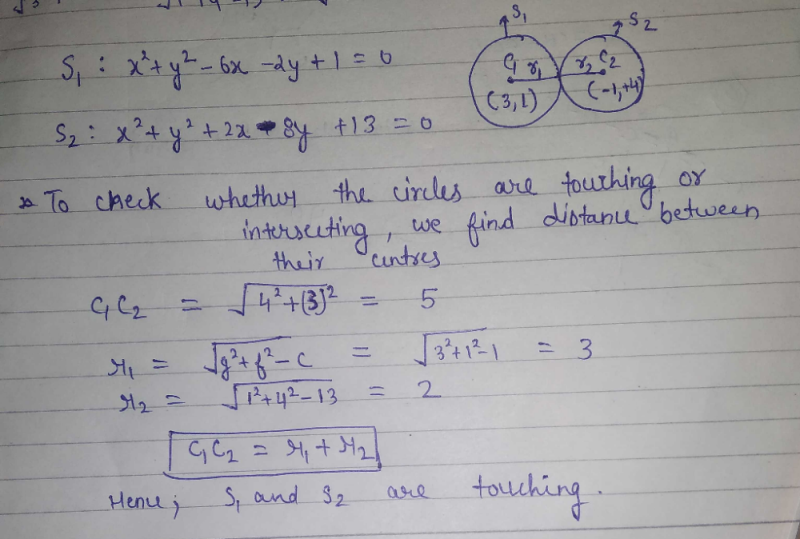 S₁
S₂
S₁ : x² + y² - 6x - 2y + 1 = 0
C₁ r₁
r₂ C₂
(3,1)
(-1,+4)
S₂ : x² + y² + 2x - 8y + 13 = 0
* To check whether the circles are touching or
intersecting, we find distance between
their centres
C₁C₂ = √4² + (3)² = 5
r₁ = √g² + f² - c = √3² + 1² - 1 = 3
r₂ = √1² + 4² - 13 = 2
C₁C₂ = r₁ + r₂
Hence; S₁ and S₂ are touching.